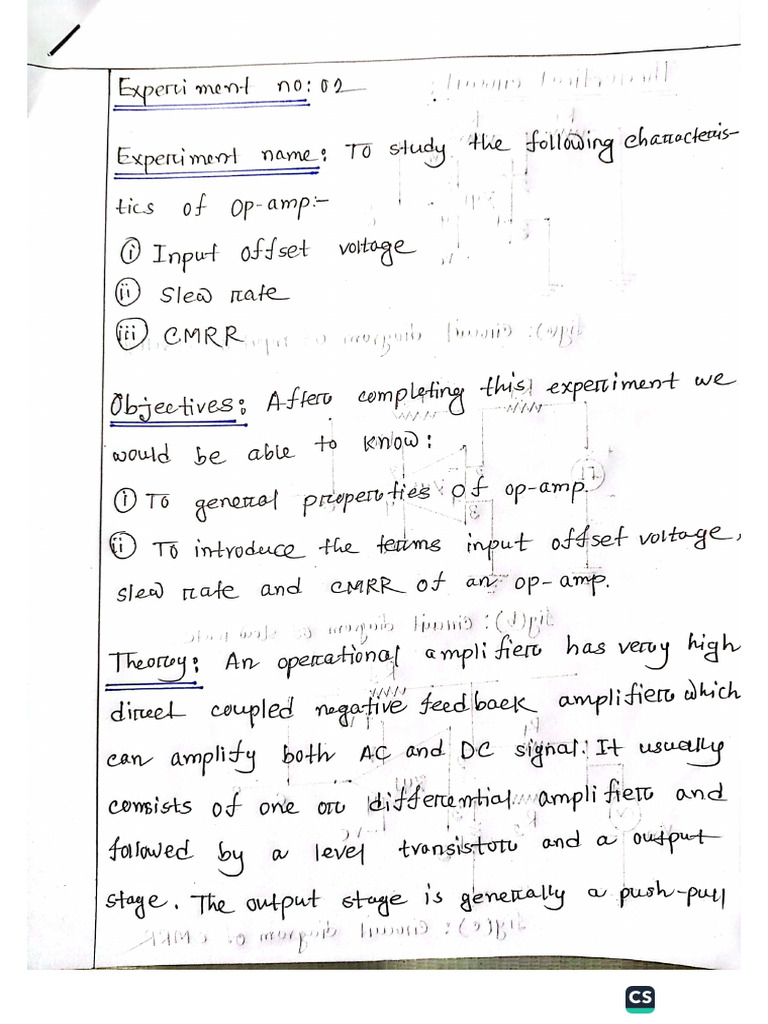 Experiment no: 02
Experiment name: To study the following characteris-
tics of Op-amp:-
(i) Input offset voltage
(ii) Slew rate
(iii) CMRR
Objectives: After completing this experiment we
would be able to know:
(i) To general properties of op-amp.
(ii) To introduce the terms input offset voltage,
slew rate and CMRR of an op-amp.
Theory: An operational amplifier has very high
direct coupled negative feedback amplifier which
can amplify both AC and DC signal. It usually
consists of one or differential amplifier and
followed by a level transistor and a output
stage. The output stage is generally a push-pull
CS